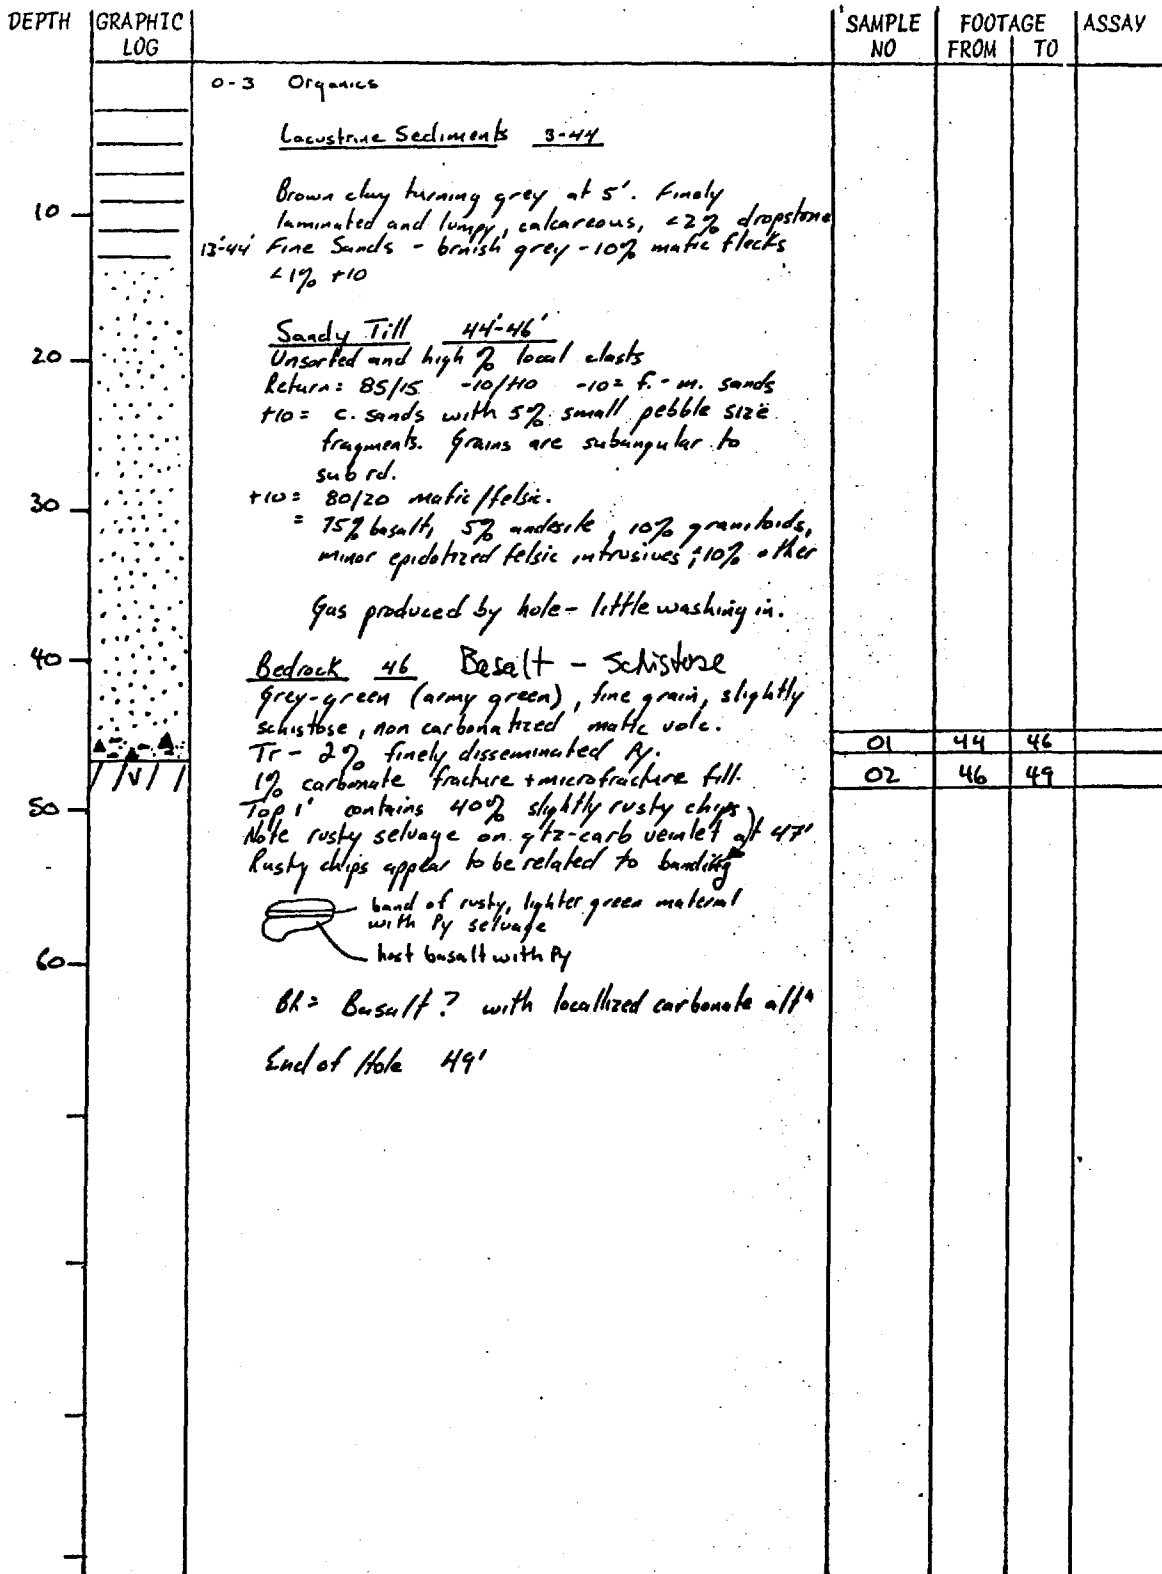 DEPTH GRAPHIC LOG SAMPLE NO FOOTAGE FROM TO ASSAY
0-3 Organics
Lacustrine Sediments 3-44
Brown clay turning grey at 5'. Finely
10
laminated and lumpy, calcareous, <2% dropstone
13'-44' Fine Sands - brnish grey - 10% mafic flecks
<1% +10
Sandy Till 44'-46'
20
Unsorted and high % local clasts
Return: 85/15 -10/+10 -10= f.-m. sands
+10= c. sands with 5% small pebble size
fragments. Grains are subangular to
sub rd.
30
+10= 80/20 mafic/felsic.
= 75% basalt, 5% andesite, 10% granitoids,
minor epidotized felsic intrusives; 10% other
Gas produced by hole - little washing in.
40
Bedrock 46 Basalt - Schistose
Grey-green (army green), fine grain, slightly
schistose, non carbonatized mafic volc.
01 44 46
Tr - 2% finely disseminated Py.
02 46 49
1% carbonate fracture + microfracture fill.
50
Top 1' contains 40% slightly rusty chips
Note rusty selvage on qtz-carb veinlet at 47'
Rusty chips appear to be related to banding
band of rusty, lighter green material
with Py selvage
host basalt with Py
60
Bh= Basalt? with locallized carbonate altn
End of Hole 49'